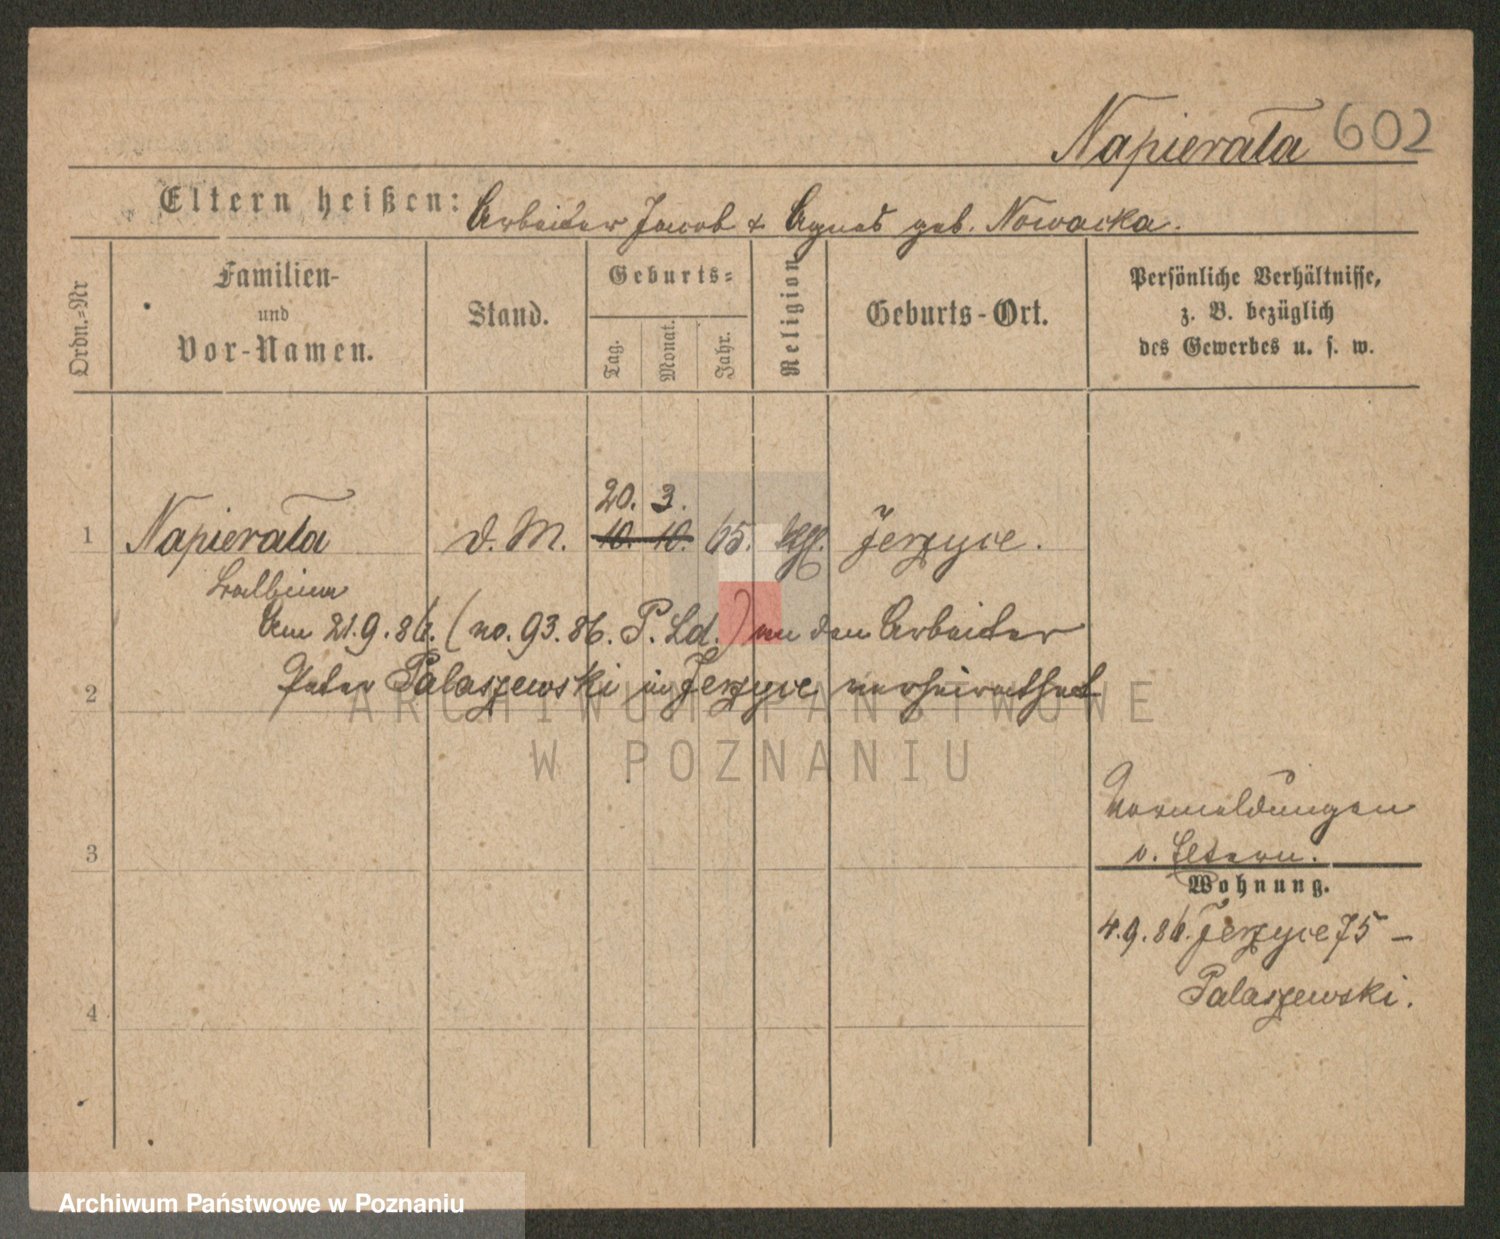 Napierała 602
Eltern heißen: Arbeiter Jacob & Agnes geb. Nowacka.
Ordn.=Nr
Familien-
und
Vor-Namen.
Stand.
Geburts=
Tag.
Monat.
Jahr.
Religion
Geburts-Ort.
Persönliche Verhältnisse,
z. B. bezüglich
des Gewerbes u. s. w.
20. 3.
1 Napierała d. M. 10. 10. 65. kth. Jerzyce.
Balbina
Am 21.9.86. (no. 93.86. P. Ld.) an den Arbeiter
2 Peter Palaszewski in Jerzyce verheirathet
ARCHIWUM PAŃSTWOWE
W POZNANIU
Vormeldungen
3 v. Eltern.
Wohnung.
4.9.86. Jerzyce 75 –
Palaszewski.
4
Archiwum Państwowe w Poznaniu